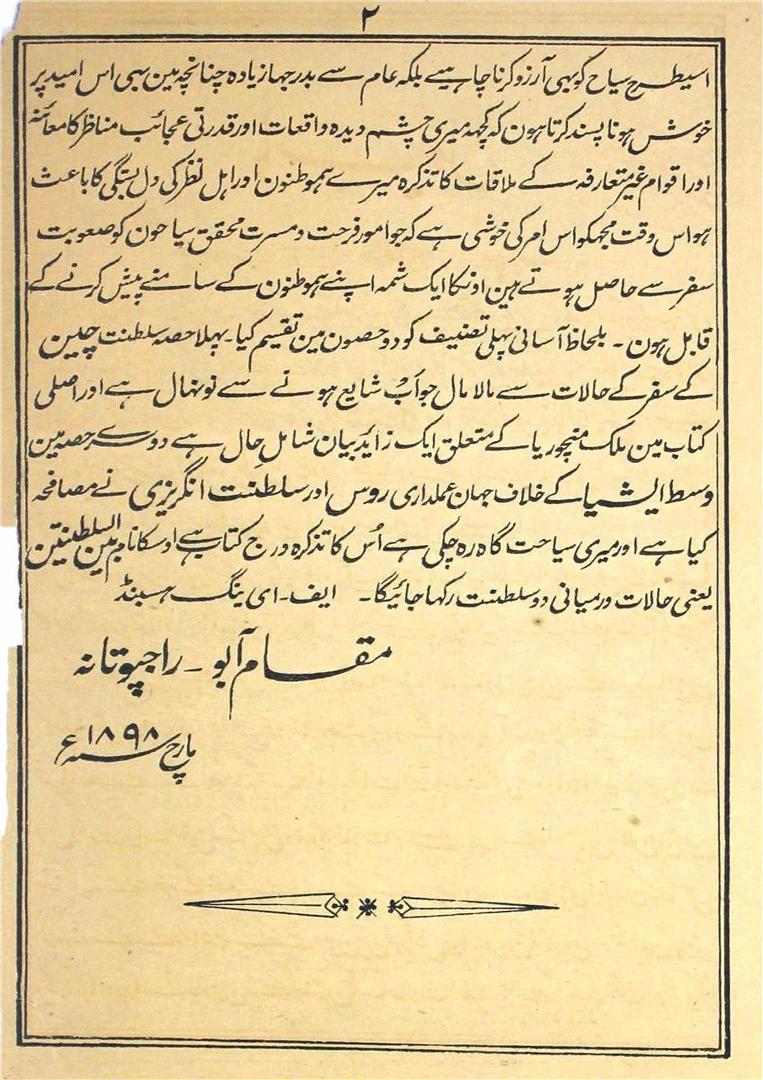 ۲
اسیطرح سیاح کو بہی آرزو کرنا چاہیے بلکہ عام سے بدرجہا زیادہ چنانچہ مین بہی اس امید پر
خوش ہونا پسند کرتا ہون کہ کچہہ میری چشم دیدہ واقعات اور قدرتی عجائب مناظر کا معائنہ
اور اقوام غیر متعارفہ کے ملاقات کا تذکرہ میرے ہموطنون اور اہل نظر کی دل بستگی کا باعث
ہو اس وقت مجہکو اس امر کی خوشی ہے کہ جو امور فرحت و مسرت محقق سیاحون کو صعوبت
سفر سے حاصل ہوتے ہین اونکا ایک شمہ اپنے ہموطنون کے سامنے پیش کرنے کے
قابل ہون ۔ بلحاظ آسانی پہلی تصنیف کو دو حصون مین تقسیم کیا ۔ پہلا حصہ سلطنت چین
کے سفر کے حالات سے مالا مال جو اَب شایع ہونے سے نونہال ہے اور اصلی
کتاب مین ملک منچوریا کے متعلق ایک زاید بیان شامل حال ہے دوسرے حصہ مین
وسط ایشیا کے خلاف جہان عملداری روس اور سلطنت انگریزی نے مصافحہ
کیا ہے اور میری سیاحت گاہ رہ چکی ہے اُس کا تذکرہ درج کتاب ہے اوسکا نام بین السلطنتین
یعنی حالات درمیانی دو سلطنت رکہا جائیگا ۔ ایف ۔ ای ینگ ہسبنڈ
مقام آبو ۔ راجپوتانہ
مارچ سنہ ۱۸۹۸ ء